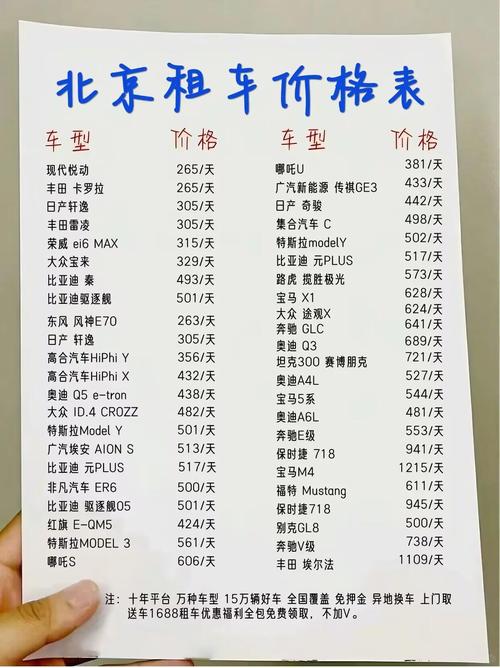 北京租车价格表
车型 价格
现代悦动 265/天
丰田 卡罗拉 265/天
日产轩逸 305/天
丰田雷凌 305/天
荣威 ei6 MAX 315/天
大众宝来 329/天
比亚迪 秦 493/天
比亚迪驱逐舰 501/天
东风 风神E70 263/天
日产 轩逸 305/天
高合汽车HiPhi Y 356/天
高合汽车HiPhi X 432/天
奥迪 Q5 e-tron 438/天
大众 ID.4 CROZZ 482/天
特斯拉Model Y 501/天
广汽埃安 AION S 513/天
比亚迪 元PLUS 517/天
非凡汽车 ER6 500/天
比亚迪 驱逐舰05 501/天
红旗 E-QM5 424/天
特斯拉MODEL 3 561/天
哪吒S 606/天
车型 价格
哪吒U 381/天
广汽新能源 传祺GE3 433/天
日产 奇骏 442/天
集合汽车 C 498/天
特斯拉modelY 502/天
比亚迪 元PLUS 517/天
路虎 揽胜极光 573/天
宝马 X1 628/天
大众 途观X 624/天
奔驰 GLC 641/天
奥迪 Q3 689/天
坦克300 赛博朋克 721/天
奥迪A4L 527/天
宝马5系 544/天
奥迪A6L 481/天
奔驰E级 553/天
保时捷 718 941/天
宝马M4 1215/天
福特 Mustang 611/天
保时捷718 945/天
别克GL8 500/天
奔驰V级 738/天
丰田 埃尔法 1109/天
注：十年平台 万种车型 15万辆好车 全国覆盖 免押金 异地换车 上门取
送车1688租车优惠福利全包免费领取，不加V。